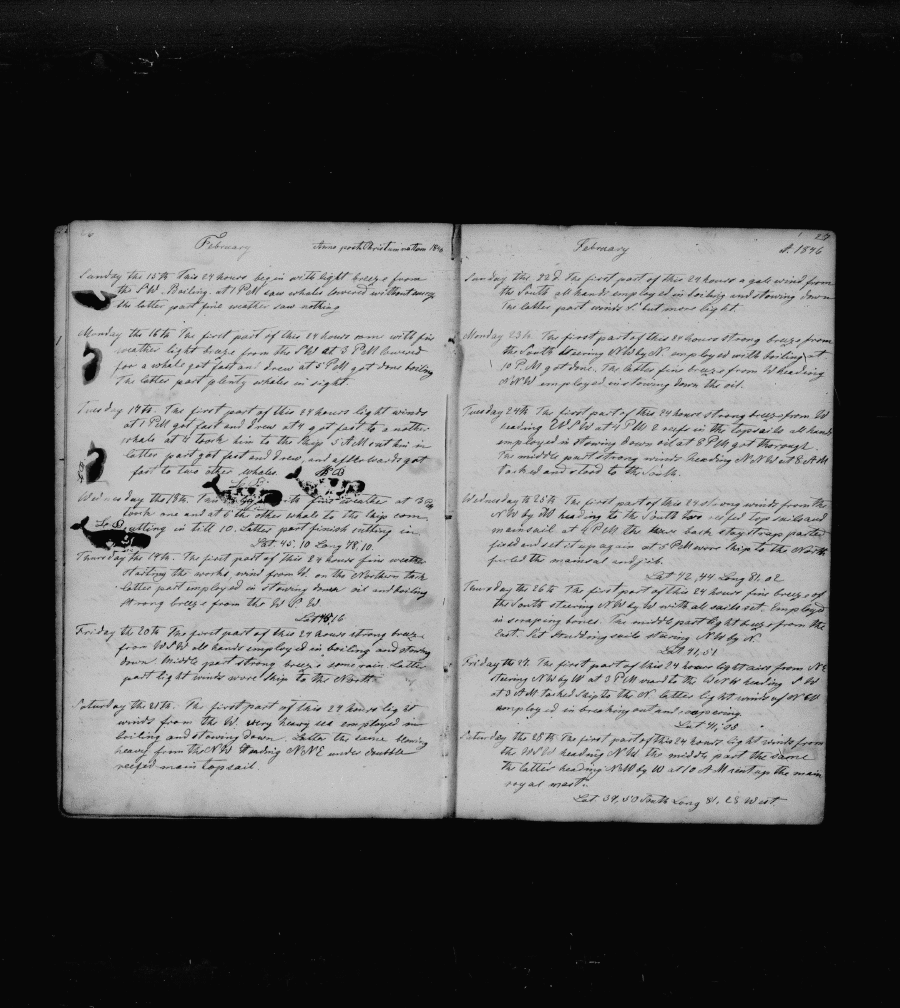 February
Anno post Christum natum 184
Sunday the 15th This 24 hours begin with light breeze from
the SW. Boiling. at 1 PM saw whales lowered without success
the latter part fine weather saw nothing
Monday the 16th The first part of this 24 hours com with fine
weather light breeze from the SW at 3 PM lowered
for a whale got fast and drew at 5 PM got done boiling
The latter part plenty whales in sight.
Tuesday 17th. The first part of this 24 hours light winds
at 1 PM got fast and drew at 4 got fast to a nother
whale at 4 took him to the Ship 5 AM cut him in
latter part got fast and drew, and afterwards got
fast to two other whales.
Wednesday the 18th. fine weather at 3 PM
took one and at 6 the other whale to the ship com
cutting in till 10. Latter part finish cutting in.
Lat. 45,10 Long 78,10.
Thursday the 19th. The first part of this 24 hours fine weather
starting the works, wind from W. on the Northern tack
latter part employed in stowing down oil and boiling
strong breeze from the W S W
Friday the 20th The first part of this 24 hours strong breeze
from WSW all hands employed in boiling and stowing
down Middle part strong breeze some rain latter
part light winds wore ship to the North
Saturday the 21th. The first part of this 24 hours light
winds from the W. very heavy sea employed in
boiling and stowing down. Latter the same blowing
heavy from the NW Heading NNE under double
reefed main topsail.
27
February
A. 1846
Sunday the 22d The first part of this 24 hours a gale wind from
the South all hands employed in boiling and stowing down
The latter part winds S. but more light.
Monday 23th. The first part of this 24 hours strong breeze from
the South Steering NW by N. employed with boiling at
10 P.M got done. The latter fine breeze from W heading
NNW employed in stowing down the oil.
Tuesday 24th. The first part of this 24 hours strong breeze from W
heading at 4 PM 2 reefs in the topsails all hands
employed in stowing down oil at 8 PM got through
The middle part strong winds heading NNW at 8 AM
tacked and stood to the South.
Wednesday th 25th The first part of this 24 strong winds from the
NW by W heading to the South two reefed top sails and
mainsail at 4 PM the back stay strap parted
fixed and set it up again at 5 PM wore ship to the North
furled the mainsail and jib.
Lat 42,44 Long 81.02
Thursday the 26th The first part of this 24 hours fine breeze of
the South steering NW by W with all sails set. Employed
in scraping bones. The middle part light breeze from the
East. Set studding sails staring NW by N.
Lat 41,51
Friday the 27. The first part of this 24 hours light airs from NE
steering NW by W at 3 PM ward to the heading SW
at 3 AM tacked Ship to the N. latter light winds of NW
employed in breaking out and coopering.
Lat 41,03
Saturday the 28th The first part of this 24 hours light winds from
the WSW heading NW the middle part the same
the latter heading NW by W at 10 AM sent up the main
royal mast.
Lat 39,50 South Long 81,28 West